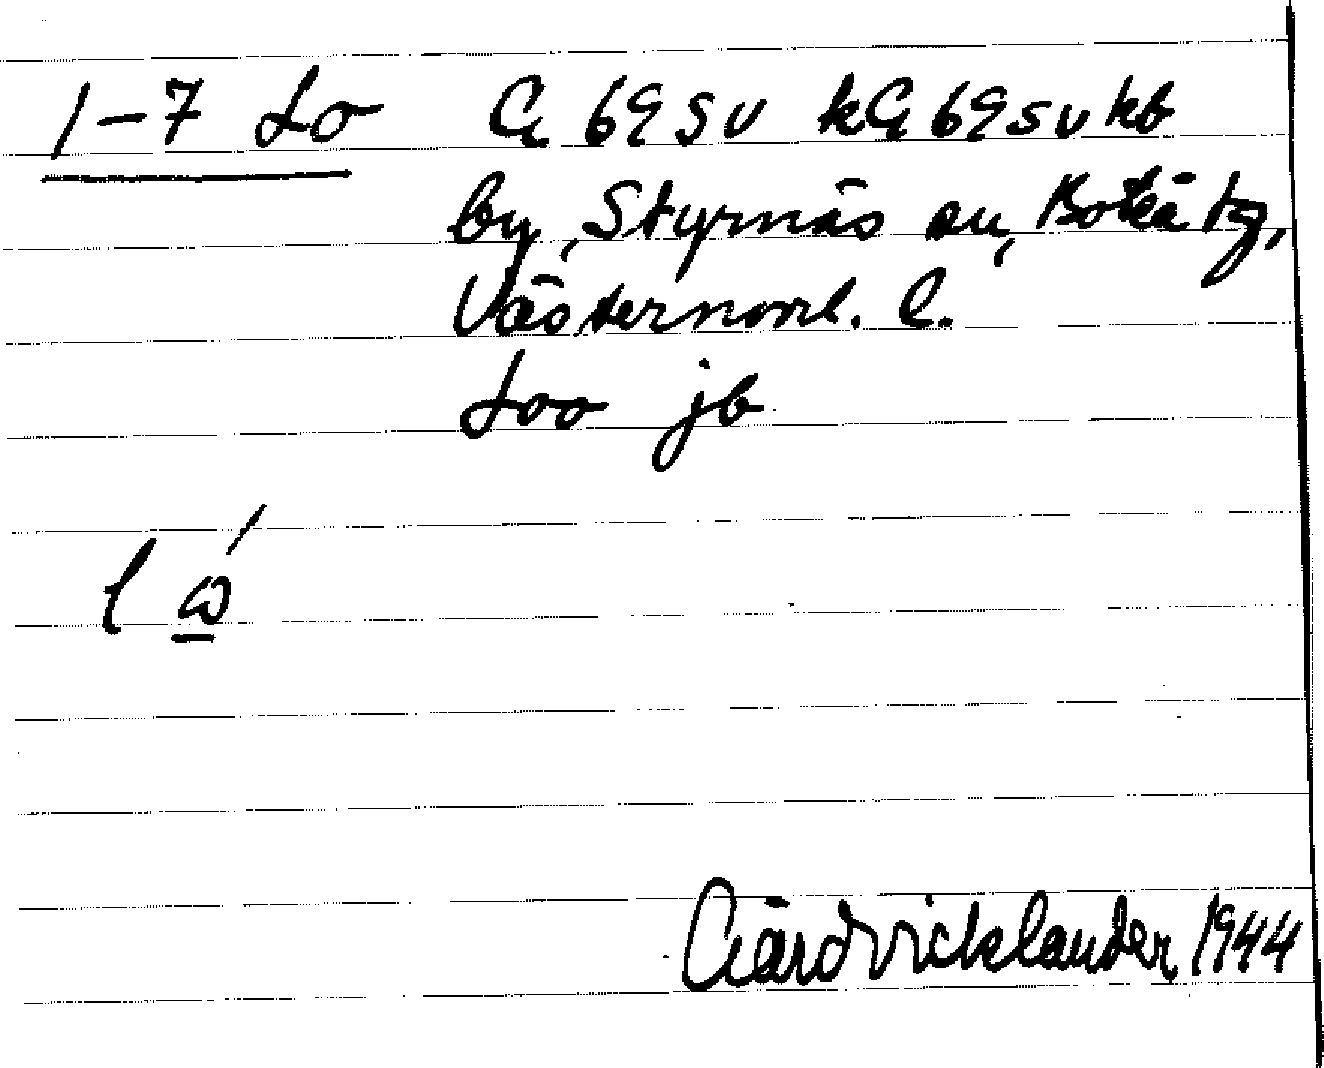 1-7 Lo G 69 sv kG 69 sv kb
by, Styrnäs sn, Boteå tg,
Västernorrl. l.
Loo jb
Gärd Vicklander 1944